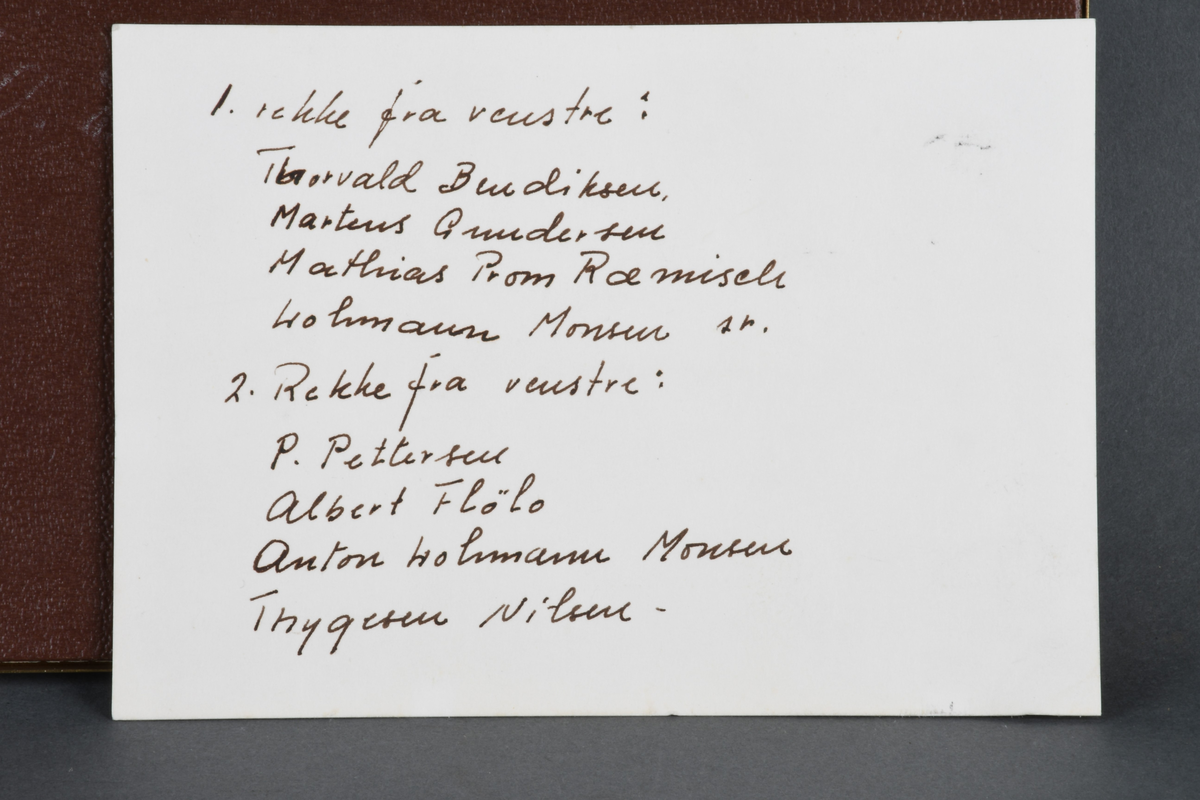 1. rekke fra venstre:
Thorvald Bendiksen,
Martens Gundersen
Mathias Prom Ræmisch
Wolmann Monsen sr.
2. Rekke fra venstre:
P. Pettersen
Albert Flölo
Anton Wolmann Monsen
Thygesen Nilsen -